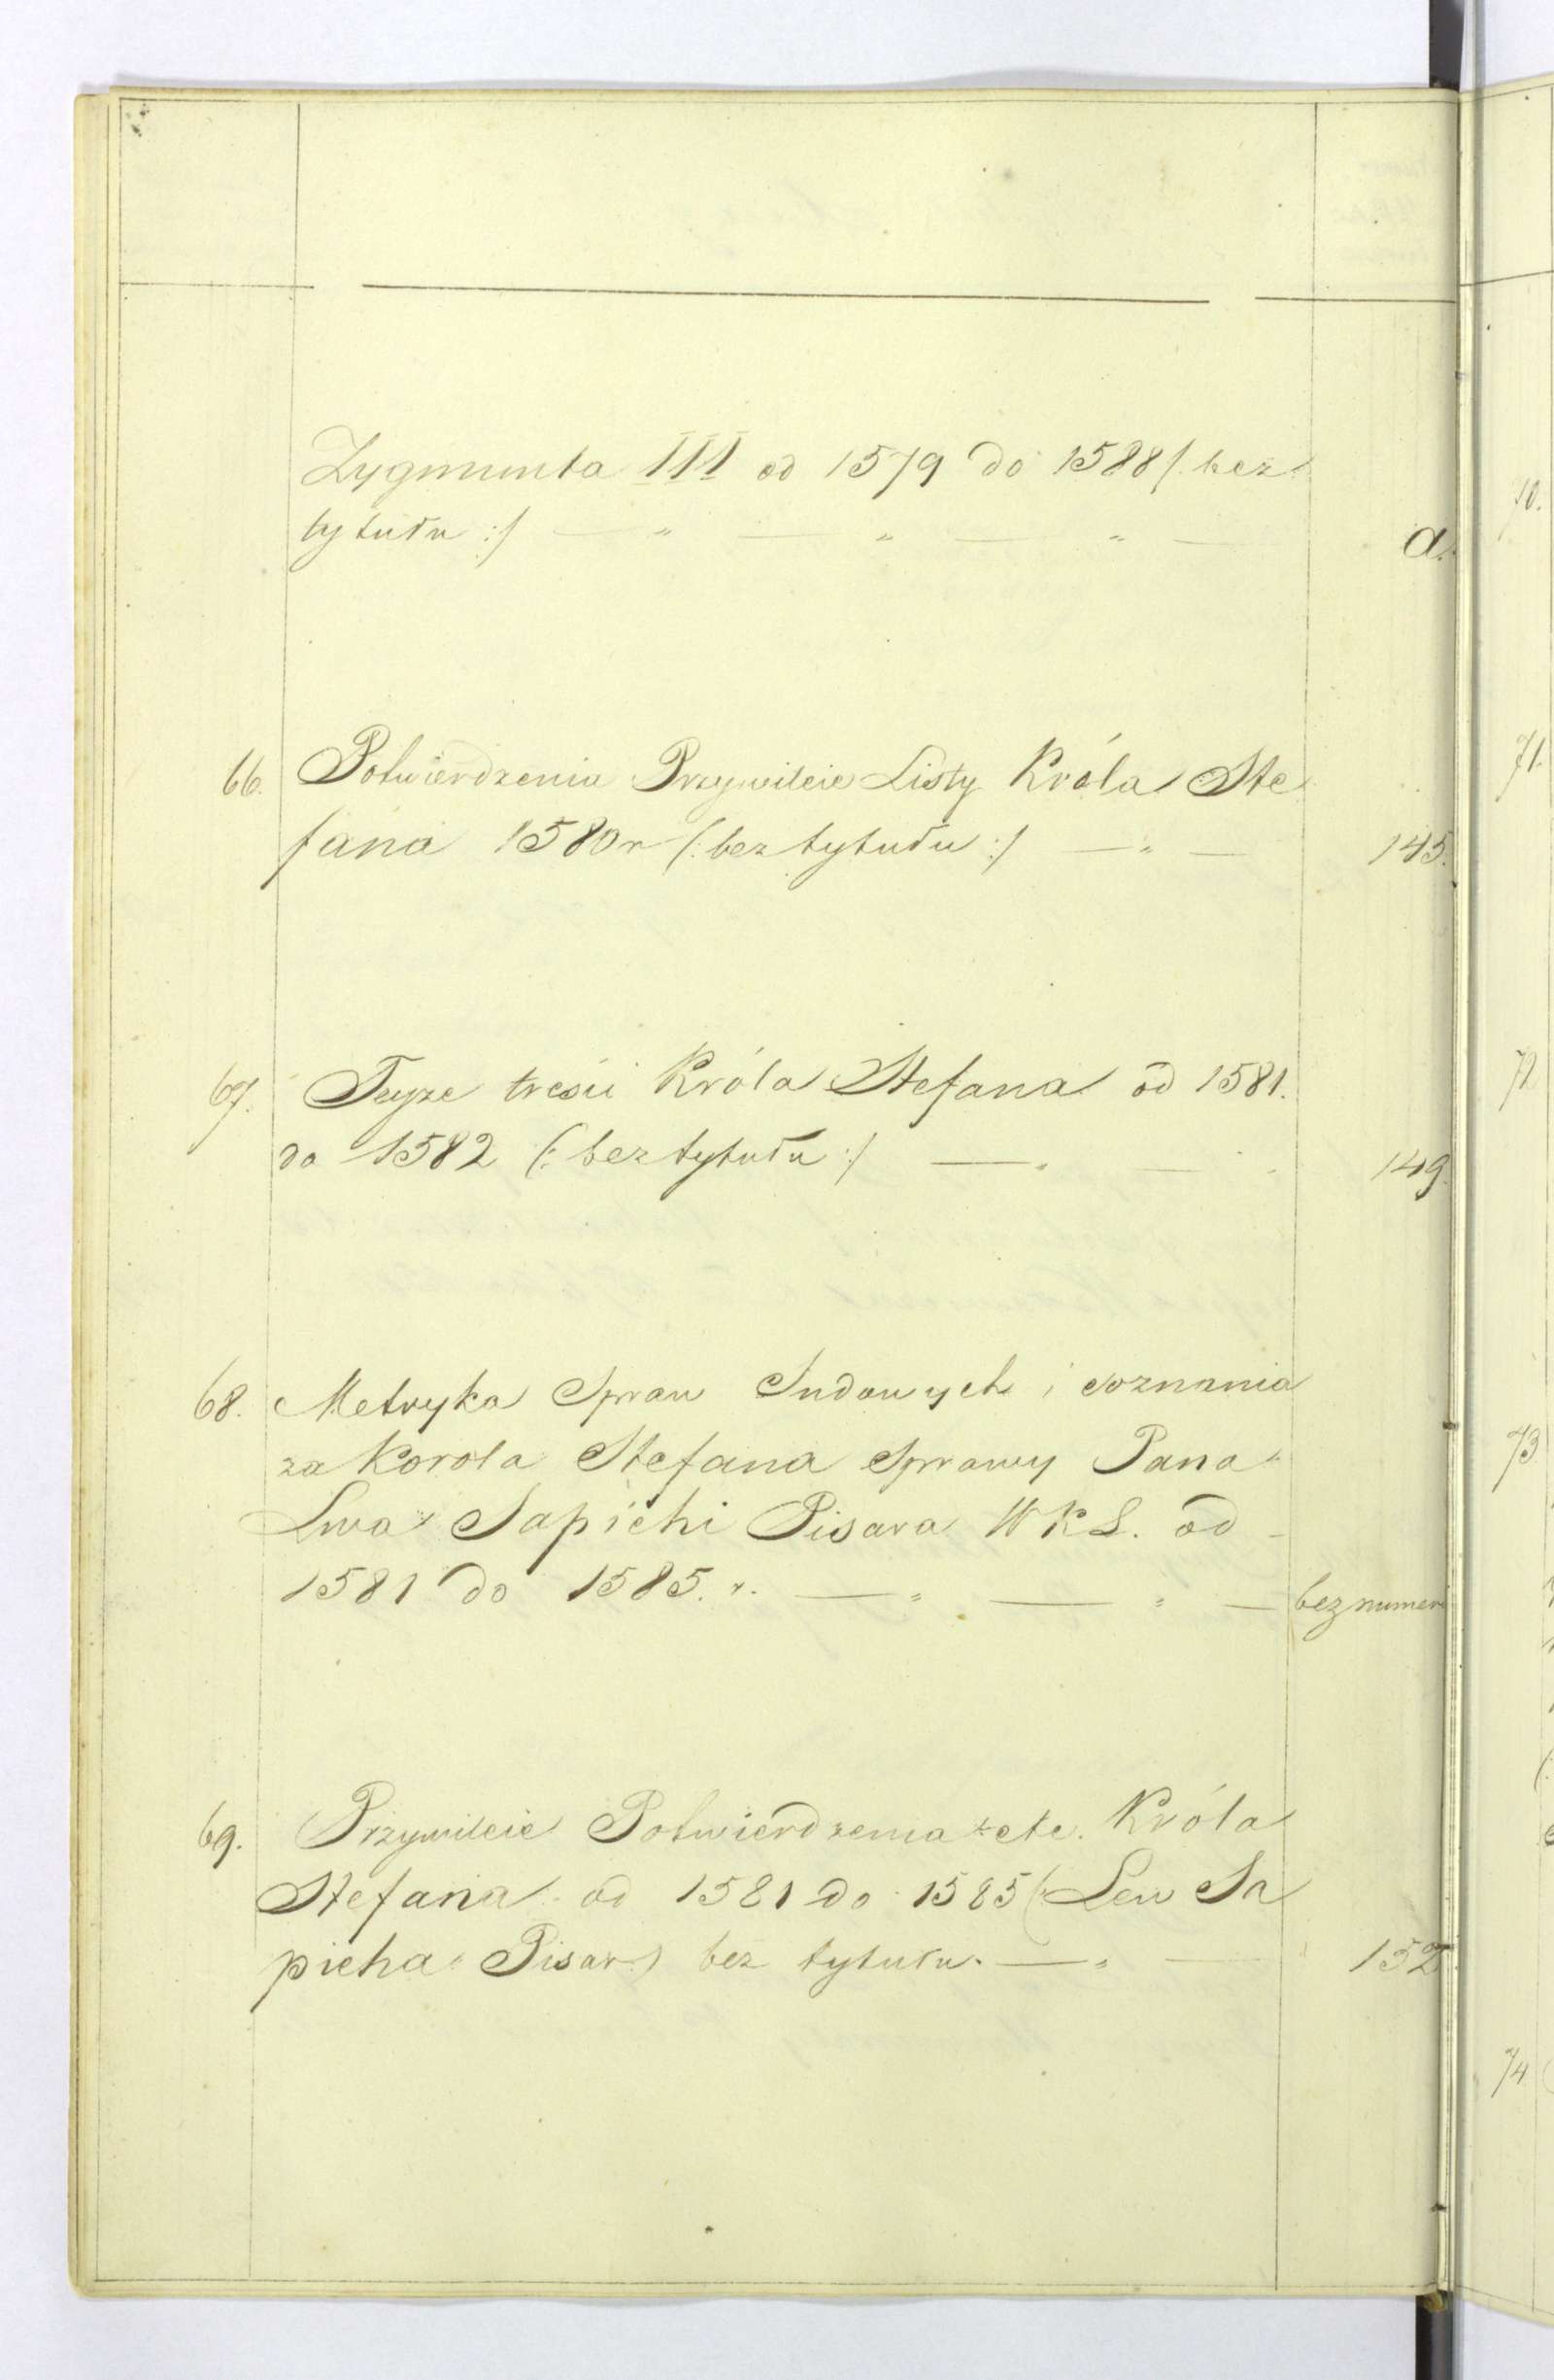 Zygmunta III od 1579 do 1588 /: bez
tytułu :/ — " — " — " — a.
66. Potwierdzenia Przywileie Listy Króla Ste
fana 1580 r (: bez tytułu :) — " — 145.
67. Teyze tresci Króla Stefana od 1581.
do 1582 (: bez tytułu :) — " — 149.
68. Metryka Spraw Sudowych i soznania
za Korola Stefana Sprawy Pana
Lwa Sapiehi Pisara W K L. od
1581 do 1585. r. — " — " — bez numeru
69. Przywileie Potwierdzenia etc. Króla
Stefana od 1581 do 1585 (: Lew Sa
pieha Pisar) bez tytułu. — " — 152
70.
71.
72
73
74